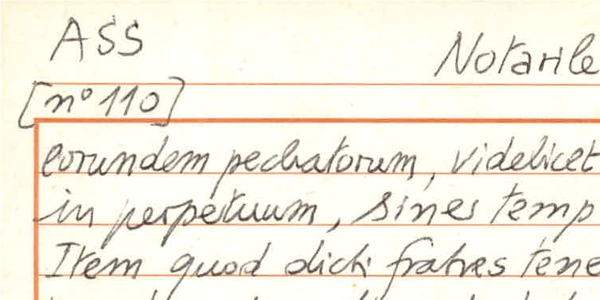 ASS
Notarile
[nº 110]
eorundem pechatorum, videlicet
in perpetuum, sines temp
Item quod dicti fratres tene